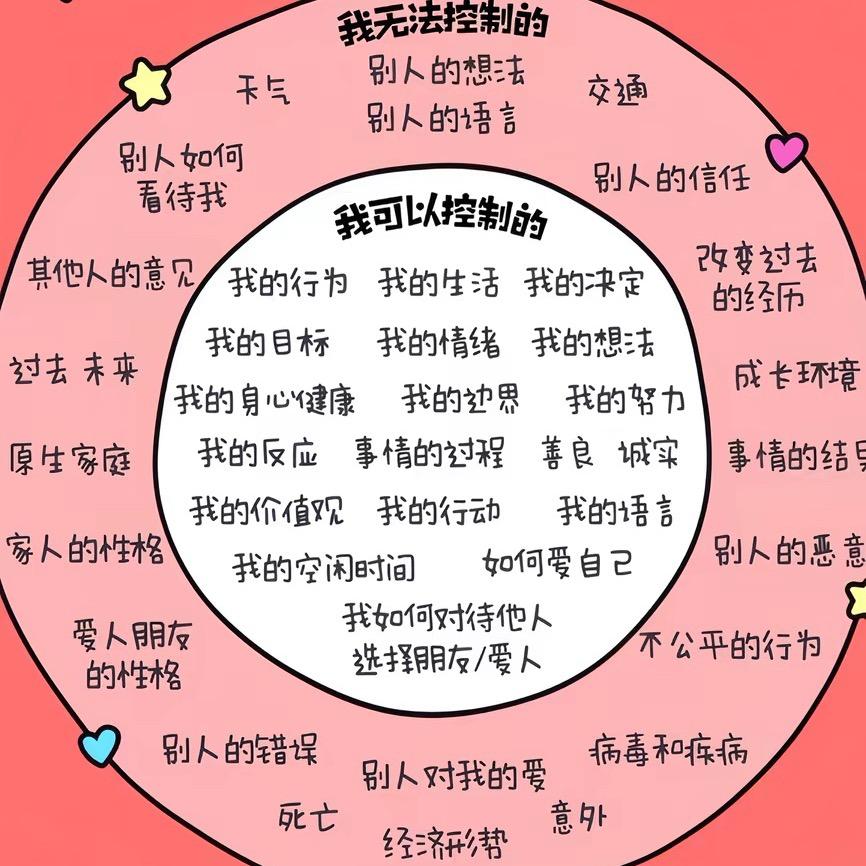 我无法控制的
别人的想法
天气
交通
别人的语言
别人如何
看待我
别人的信任
我可以控制的
其他人的意见
我的行为 我的生活 我的决定
改变过去
的经历
我的目标 我的情绪 我的想法
过去 未来
成长环境
我的身心健康 我的边界 我的努力
原生家庭
我的反应 事情的过程 善良 诚实
事情的结
我的价值观 我的行动 我的语言
家人的性格
别人的恶意
我的空闲时间 如何爱自己
我如何对待他人
选择朋友/爱人
爱人朋友
的性格
不公平的行为
别人的错误
病毒和疾病
别人对我的爱
死亡
意外
经济形势